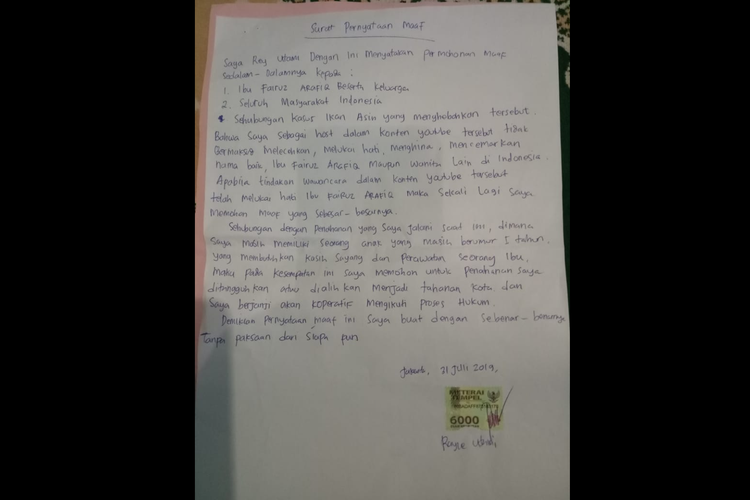 Surat Pernyataan Maaf
Saya Rey Utami Dengan Ini Menyatakan Permohonan Maaf
Sedalam-Dalamnya kepada :
1. Ibu Fairuz ARAFIQ Beserta Keluarga
2. Seluruh Masyarakat Indonesia
Sehubungan Kasus Ikan Asin yang menghebohkan tersebut.
Bahwa Saya Sebagai host dalam konten youtube tersebut tidak
Bermaksud Melecehkan, Melukai hati, menghina, mencemarkan
nama baik, Ibu Fairuz ARAFIQ Maupun Wanita Lain di Indonesia.
Apabila tindakan wawancara dalam konten youtube tersebut
telah Melukai hati Ibu FAIRUZ ARAFIQ Maka Sekali Lagi Saya
Memohon Maaf yang Sebesar-besarnya.
Sehubungan dengan Penahanan yang Saya jalani Saat ini, dimana
Saya Masih Memiliki Seorang anak yang masih berumur 1 tahun.
yang membutuhkan Kasih Sayang dan Perawatan Seorang Ibu,
Maka Pada Kesempatan ini Saya Memohon untuk Penahanan Saya
ditangguhkan atau dialihkan Menjadi tahanan Kota dan
Saya berjanji akan koperatif Mengikuti Proses Hukum.
Demikian Pernyataan Maaf ini Saya buat dengan Sebenar-benarnya
Tanpa paksaan dari Siapa pun
Jakarta, 31 Juli 2019,
METERAI
TEMPEL
6000